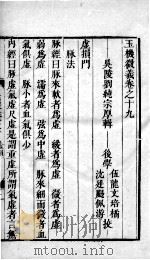 玉機微義卷之十九
吳陵劉純宗厚輯
後學
伍龍文培橘
沈廷颺佩游 校
虛損門
脉法
脉經曰脉來軟者爲虛 緩者爲虛 微者爲虛
弱爲虛 濡爲虛 弦爲中虛 脉來細而微者血
氣俱虛 脉小者血氣俱少
內經曰脉虛氣虛尺虛是謂重虛所謂氣虛者言無